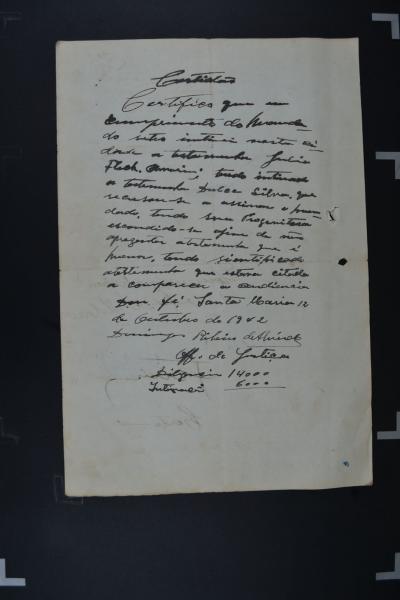 Certidão
Certifico que em
cumprimento do Manda-
do retro intimei nesta ci-
dade a testemunha Julio
tendo intimado
a testemunha Dulce Silva, que
recusou-se a assinar o man-
dado, tendo sua Progenitora
escondido-se afim de não
a testemunha que é
tendo scientificado
a testemunha que estava citada
a comparecer a audiencia
Dou fé, Santa Maria 12
de Outubro de 1942
Domingos Ribeiro de Almeida
Off. de Justiça
Diligencia 14000
Intimação 6000